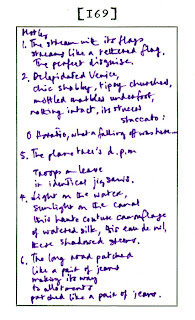 [I69]
Motley
1. The stream with its flags
streams like a tethered flag.
The perfect disguise.
2. Delapidated Venice,
chic shabby, tipsy churches,
mottled marbles underfoot,
nothing intact, its stucco
staccato:
O Horatio, what a falling off was there...
5. The plane tree's d.p.m
Troops on leave
in identical jigsaws.
4. Light on the water,
sunlight on the canal
this haute couture camouflage
of watered silk, this eau de nil,
these shadowed stems.
6. The long road patched
like a pair of jeans
making its way
to allotments
patched like a pair of jeans.